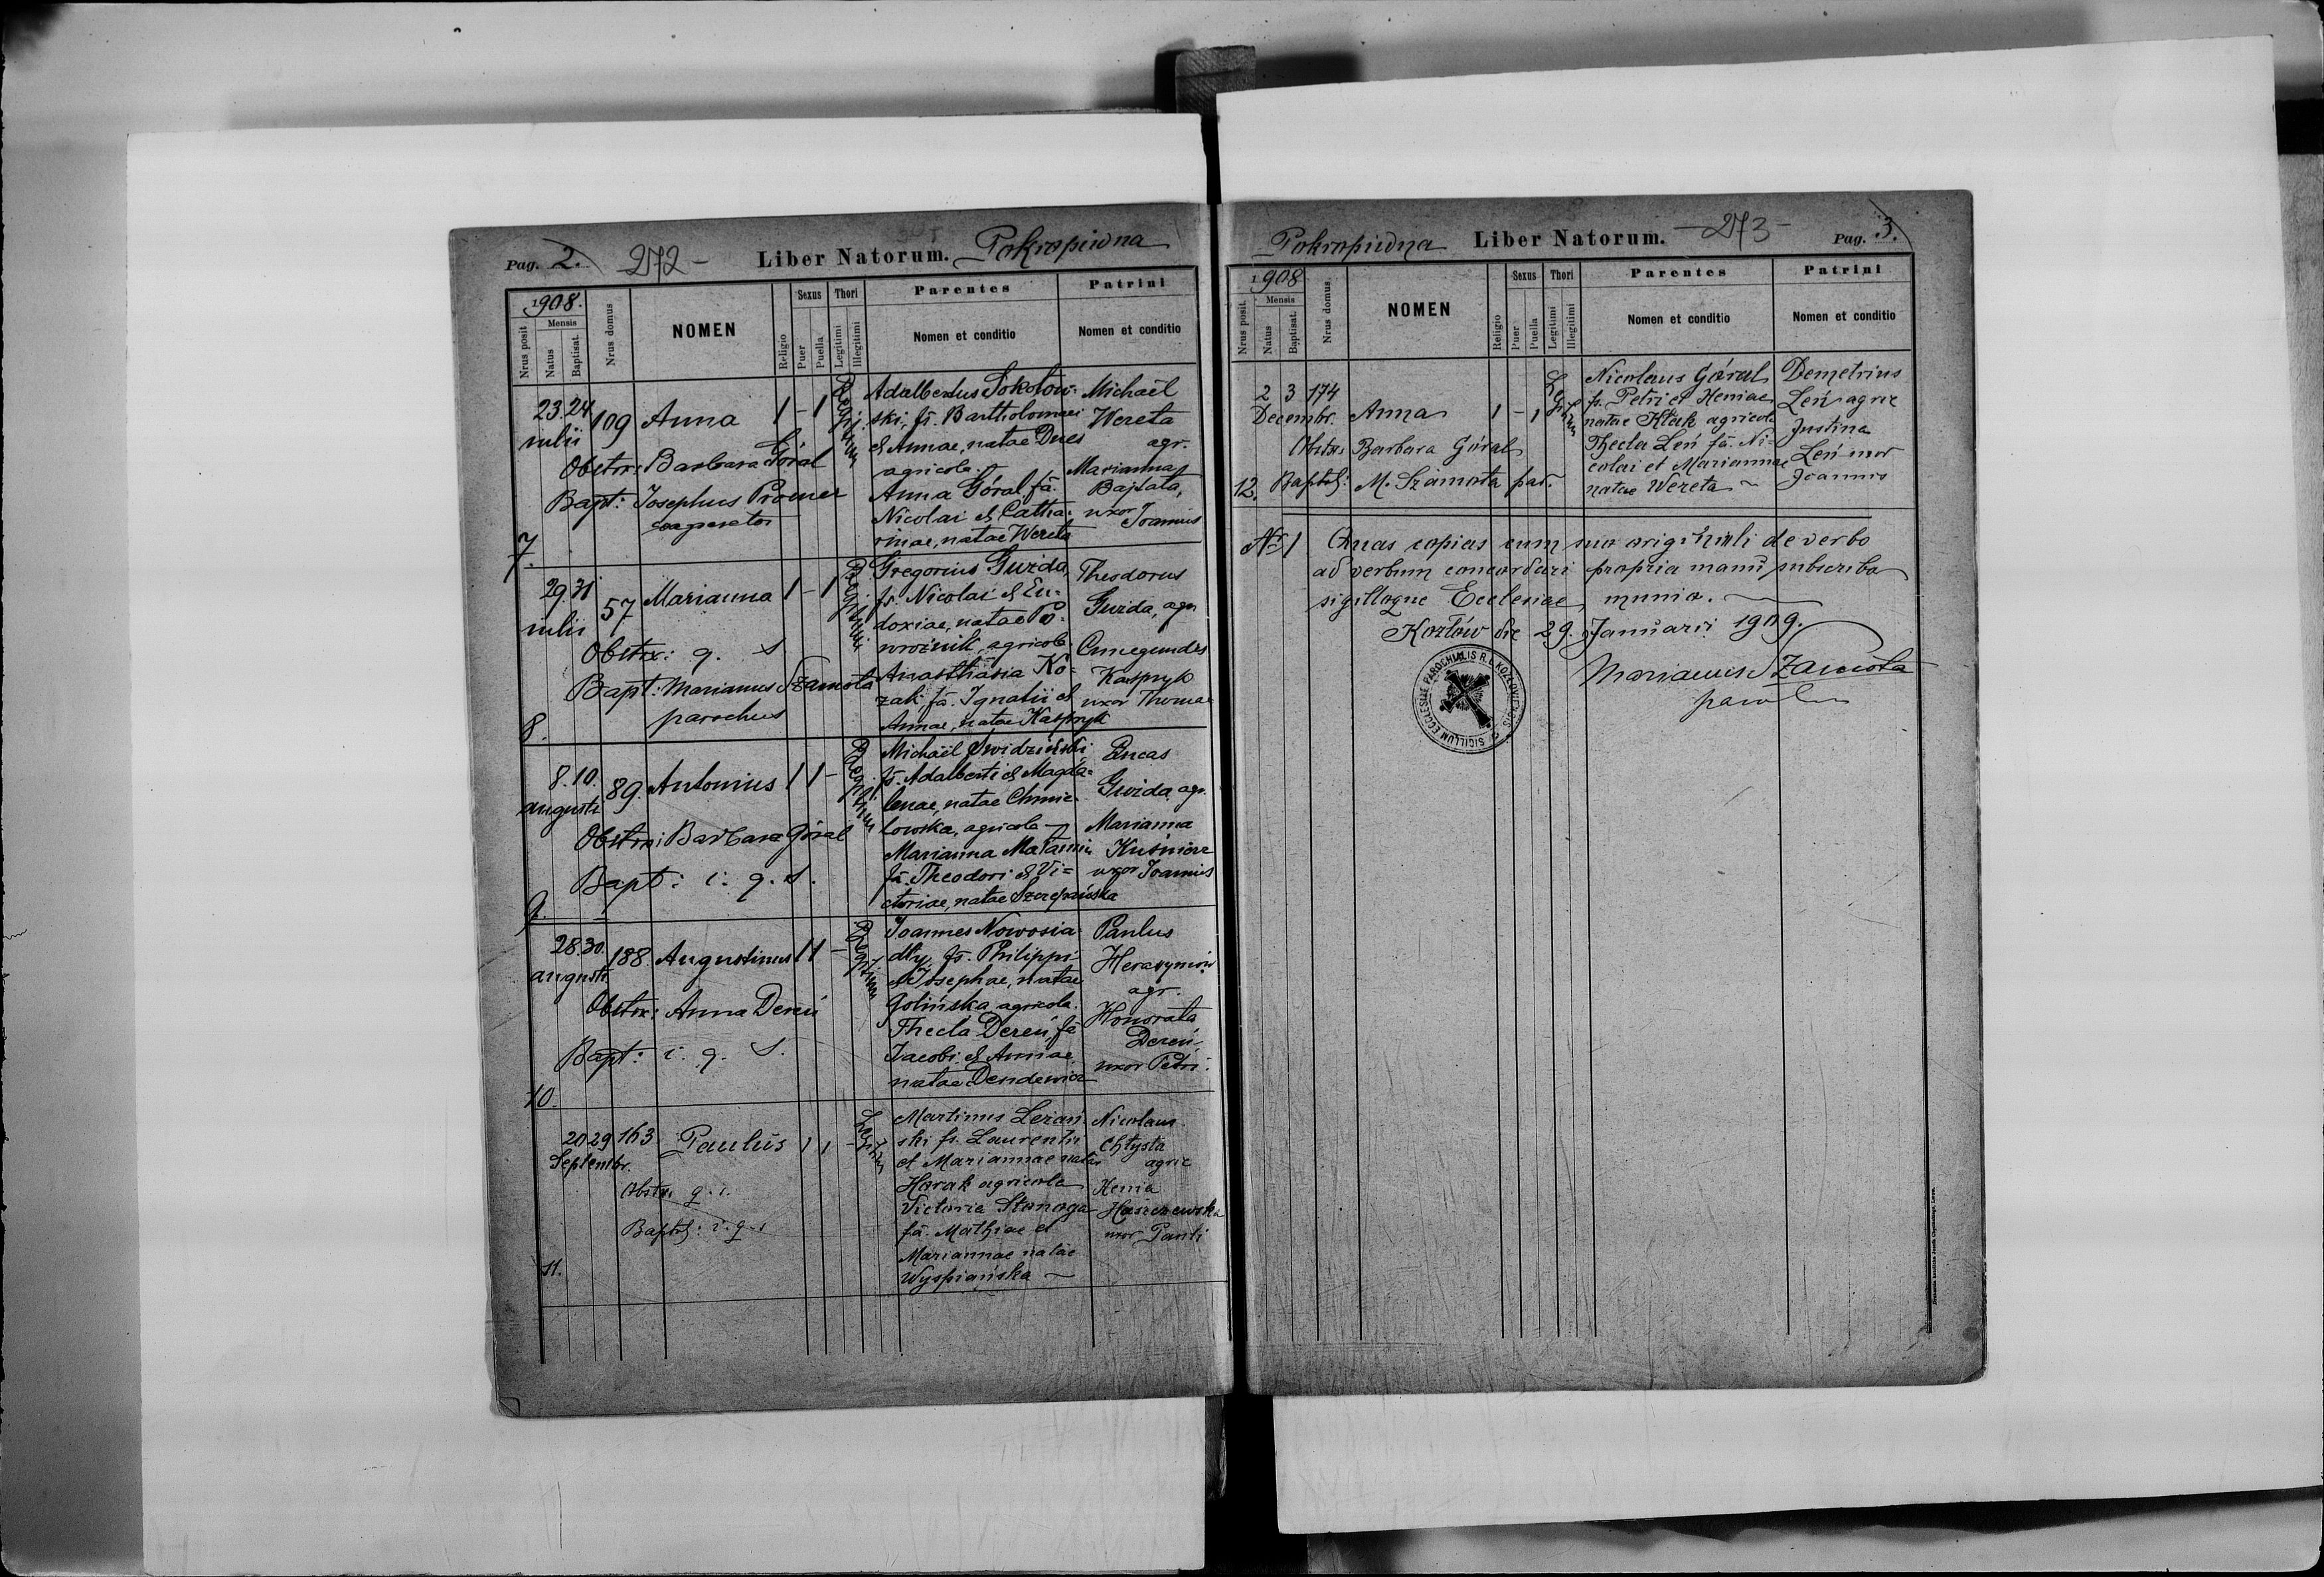 Pag. 2. 272 - Liber Natorum. Pokropiwna
1908.
Nrus posit
Mensis
Natus
Baptisat.
Nrus domus
NOMEN
Religio
Sexus
Puer
Puella
Thori
Legitimi
Illegitimi
Parentes
Nomen et conditio
Patrini
Nomen et conditio
7.
23. 24.
iulii
109
Anna
1 - 1
Legitim
Obstrx: Barbara Góral
Bapt: Josephus Promer
cooperator
Adalbertus Sokołow-
ski, fs. Bartholomaei
et Annae, natae Dues
agricola.
Anna Góral, fa.
Nicolai et Catha-
rinae, natae Wereta
Michaël
Wereta
agr.
Marianna
Bajtała,
uxor Joannis
8.
29. 31
iulii
57
Marianna
1 - 1
Legitim
Obstrx: q. s
Bapt: Marianus Szamota
parochus
Gregorius Gwizda,
fs. Nicolai et Eu-
doxiae, natae Po-
wroźnik, agricola
Anasthasia Ko-
zak, fa. Ignatii et
Annae, natae Kaspryk
Theodorus
Gwizda, agr.
Cunegundes
Kaspryk
uxor Thomae
9.
8. 10.
augusti
89.
Antonius
1 1 -
Legitim
Obstrx: Barbara Góral
Bapt: i. q. s.
Michaël Świdziński
fs. Adalberti et Magda-
lenae, natae Chmie-
lowska, agricola
Marianna
fa. Theodori et Vi-
ctoriae, natae Szczepańska
Lucas
Gwizda agr.
Marianna
Kuśnierz
uxor Joannis
10.
28. 30.
augusti
188.
Augustinus
1 1 -
Legitim
Obstrx: Anna Dereń
Bapt: i. q. s.
Joannes Nowosia-
dły, fs. Philippi
et Josephae, natae
Golińska, agricola.
Thecla Dereń, fa
Jacobi et Annae,
natae Dendewicz
Paulus
Herasymów
agr.
Honorata
Dereń,
uxor Petri.
11.
20 29
Septembr.
163
Paulus
1 1 -
Legitim
Obstrx q. i.
BaptS: i. q. s
Martinus Lezań-
ski fs. Laurentii
et Mariannae natae
Horak agricola
Victoria Stanoga
fa. Mathiae et
Mariannae natae
Wyspiańska
Nicolaus
Chłysta
agric
Xenia
Haszczewska
uxor Pauli
Pokropiwna Liber Natorum. - 273 - Pag. 3.
1908
Nrus posit.
Mensis
Natus
Baptisat.
Nrus domus
NOMEN
Religio
Sexus
Puer
Puella
Thori
Legitimi
Illegitimi
Parentes
Nomen et conditio
Patrini
Nomen et conditio
12.
2 3
Decembr.
174
Anna
1 - 1
Legitim
Obstrx Barbara Góral
BaptS: M. Szamota par.
Nicolaus Góral
fs. Petri et Xeniae
natae Kłak agricola
Thecla Leń fa. Ni-
colai et Mariannae
natae Wereta
Demetrius
Leń agric
Justina
Leń uxor
Joannis
Nr 1 Quas copias cum suo originali de verbo
ad verbum concordari propria manu subscribo
sigilloque Ecclesiae munio.
Kozłów die 29. Januarii 1909.
Marianus Szamota
paroch
SIGILLUM ECCLESIAE PAROCHIALIS R. L. KOZLOVIENSIS